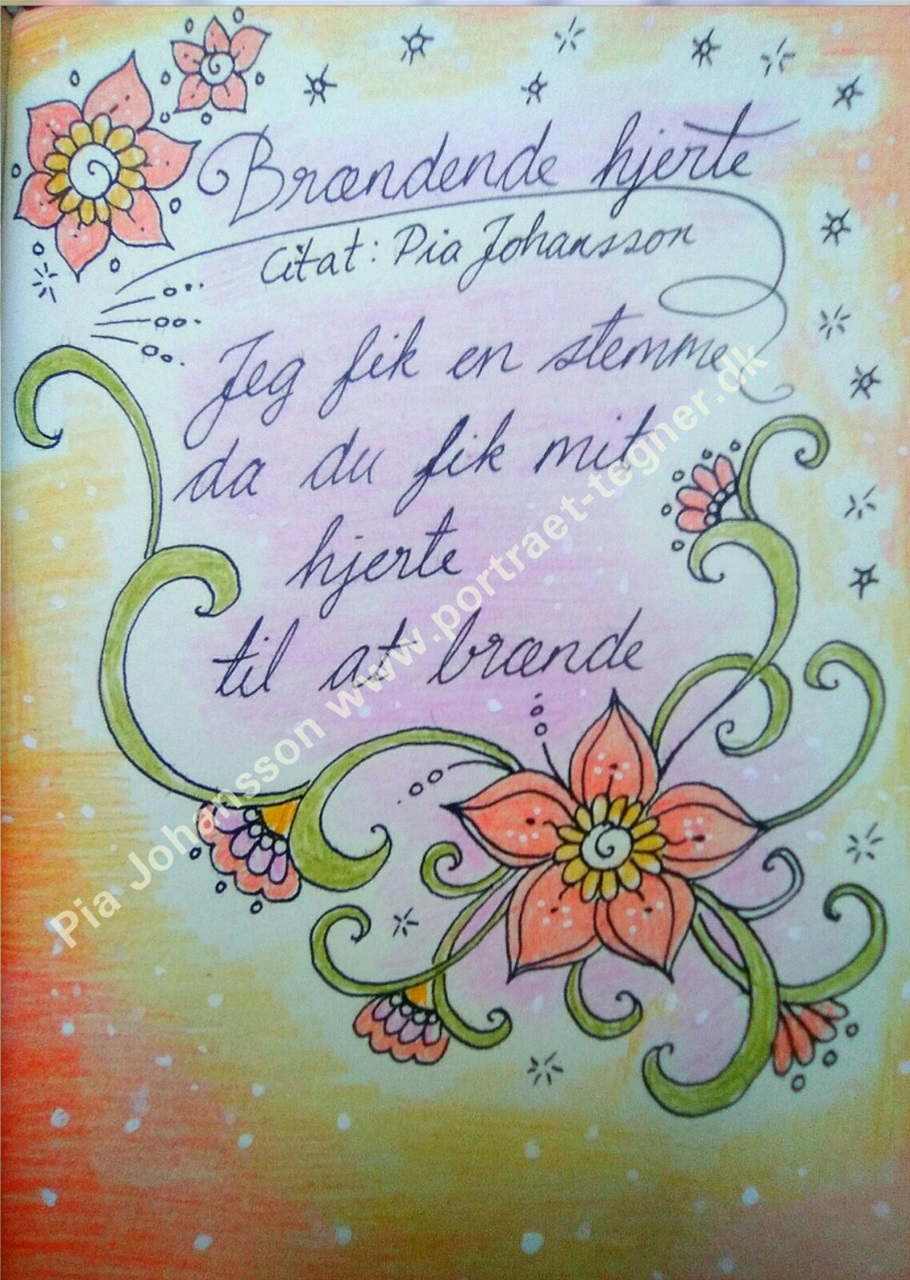 Brændende hjerte
Citat: Pia Johansson
Jeg fik en stemme
da du fik mit
hjerte
til at brænde
Pia Johansson www.portraet-tegner.dk